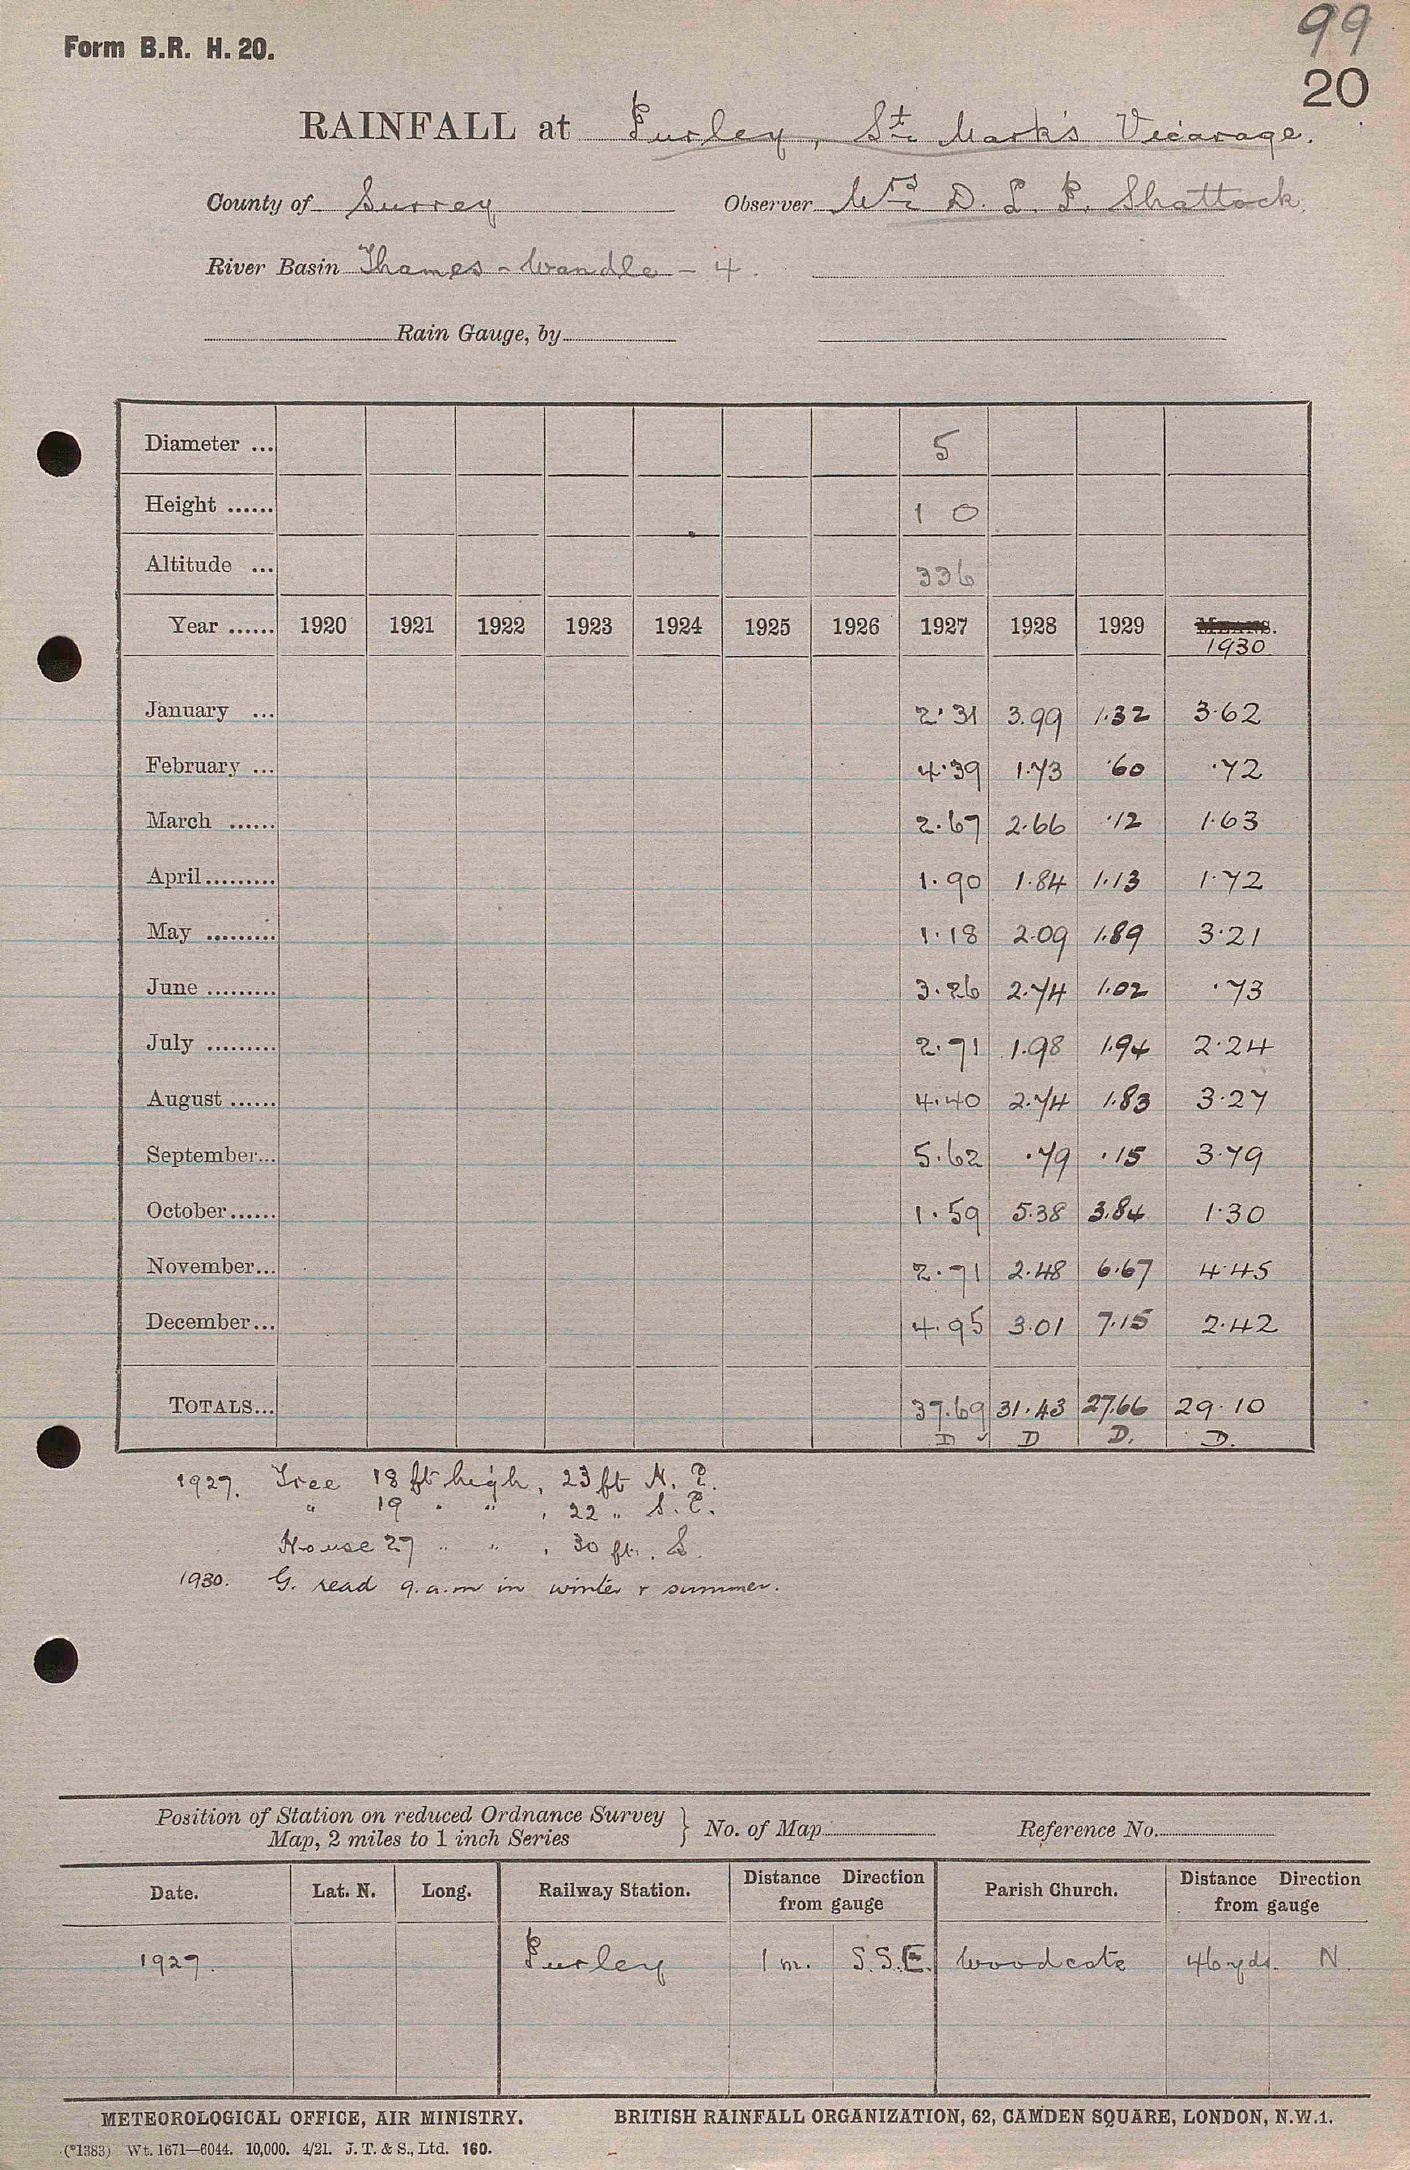 99
Form B.R. H. 20.
20
RAINFALL at Purley, St. Mark's Vicarage.
County of Surrey Observer Mrs D. L. P. Shattock.
River Basin Thames - Wandle - 4.
Rain Gauge, by
Diameter ... 5
Height ...... 1 0
Altitude ... 336
Year ...... 1920 1921 1922 1923 1924 1925 1926 1927 1928 1929 MEANS.
1930
January ... 2.31 3.99 1.32 3.62
February ... 4.39 1.73 .60 .72
March ...... 2.67 2.66 .12 1.63
April......... 1.90 1.84 1.13 1.72
May ......... 1.18 2.09 1.89 3.21
June ......... 3.26 2.74 1.02 .73
July ......... 2.71 1.98 1.94 2.24
August ...... 4.40 2.74 1.83 3.27
September... 5.62 .79 .15 3.79
October...... 1.59 5.38 3.84 1.30
November... 2.71 2.48 6.67 4.45
December... 4.95 3.01 7.15 2.42
TOTALS... 37.69 31.43 27.66 29.10
D ✓ D D. D.
1927. Tree 18 ft high, 23 ft N. E.
" 19 " " , 22 " S. E.
House 27 " " , 30 ft. S.
1930. G. read 9.a.m in winter & summer.
Position of Station on reduced Ordnance Survey
Map, 2 miles to 1 inch Series } No. of Map Reference No.
Date. Lat. N. Long. Railway Station. Distance Direction from gauge Parish Church. Distance Direction from gauge
1927. Purley 1 m. S.S.E. Woodcote 46 yds. N.
METEOROLOGICAL OFFICE, AIR MINISTRY. BRITISH RAINFALL ORGANIZATION, 62, CAMDEN SQUARE, LONDON, N.W.1.
(*1383) Wt. 1671—6044. 10,000. 4/21. J. T. & S., Ltd. 160.